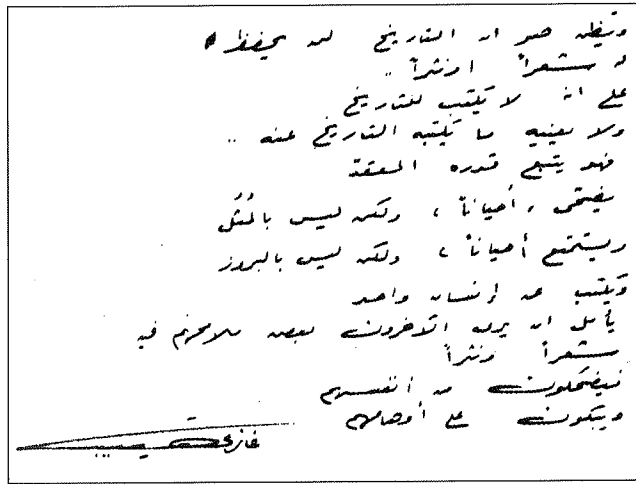 ويظن هو ان التاريخ لن يحفظ
له شعراً او نثراً ..
على انه لا يكتب للتاريخ
ولا يعنيه ما يكتبه التاريخ عنه ..
فهو يتبع قدره المعقد
يضحي ، أحياناً ، ولكن ليس بالمُثُل
ويستمتع أحياناً ، ولكن ليس بالبروز
ويكتب عن إنسان واحد
يأمل ان يرى الآخرون بعض ملامحهم فيه
شعراً ونثراً
فيضحكون من أنفسهم
ويبكون على أوهامهم
غازي القصيبي